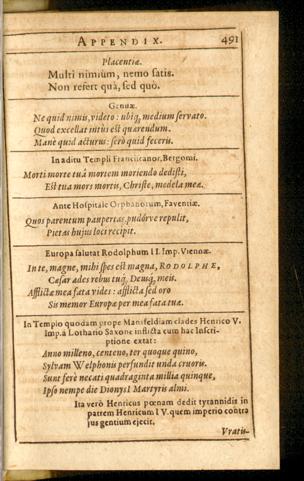 APPENDIX. 491
Placentiæ.
Multi nimium, nemo satis.
Non refert quà, sed quò.
Genuæ.
Ne quid nimis, videto: ubiq, medium servato.
Quod excellat intùs est quærendum.
Manè quid acturus: serò quid feceris.
In aditu Templi Franciscanor. Bergomi.
Morti morte tuâ mortem moriendo dedisti,
Est tua mors mortis, Christe, medela meæ.
Ante Hospitale Orphanorum, Faventiæ.
Quos parentum paupertas, pudórve repulit,
Pietas hujus loci recipit.
Europa salutat Rodolphum II. Imp. Viennæ.
In te, magne, mihi spes est magna, RODOLPHE,
Cæsar ades rebus tuq, Deusq, meis.
Afflictæ mea fata vides: afflicta sed oro
Sis memor Europæ per mea fata tuæ.
In Templo quodam prope Mansfeldiam clades Henrico V.
Imp. à Lothario Saxone inflicta cum hac Inscri-
ptione extat:
Anno milleno, centeno, ter quoque quino,
Sylvam Welphonis perfundit unda cruoris.
Sunt ferè necati quadraginta millia quinque,
Ipso nempe die Dionysî Martyris almi.
Ita verò Henricus pœnam dedit tyrannidis in
patrem Henricum IV. quem imperio contra
jus gentium ejecit.
Vratis-